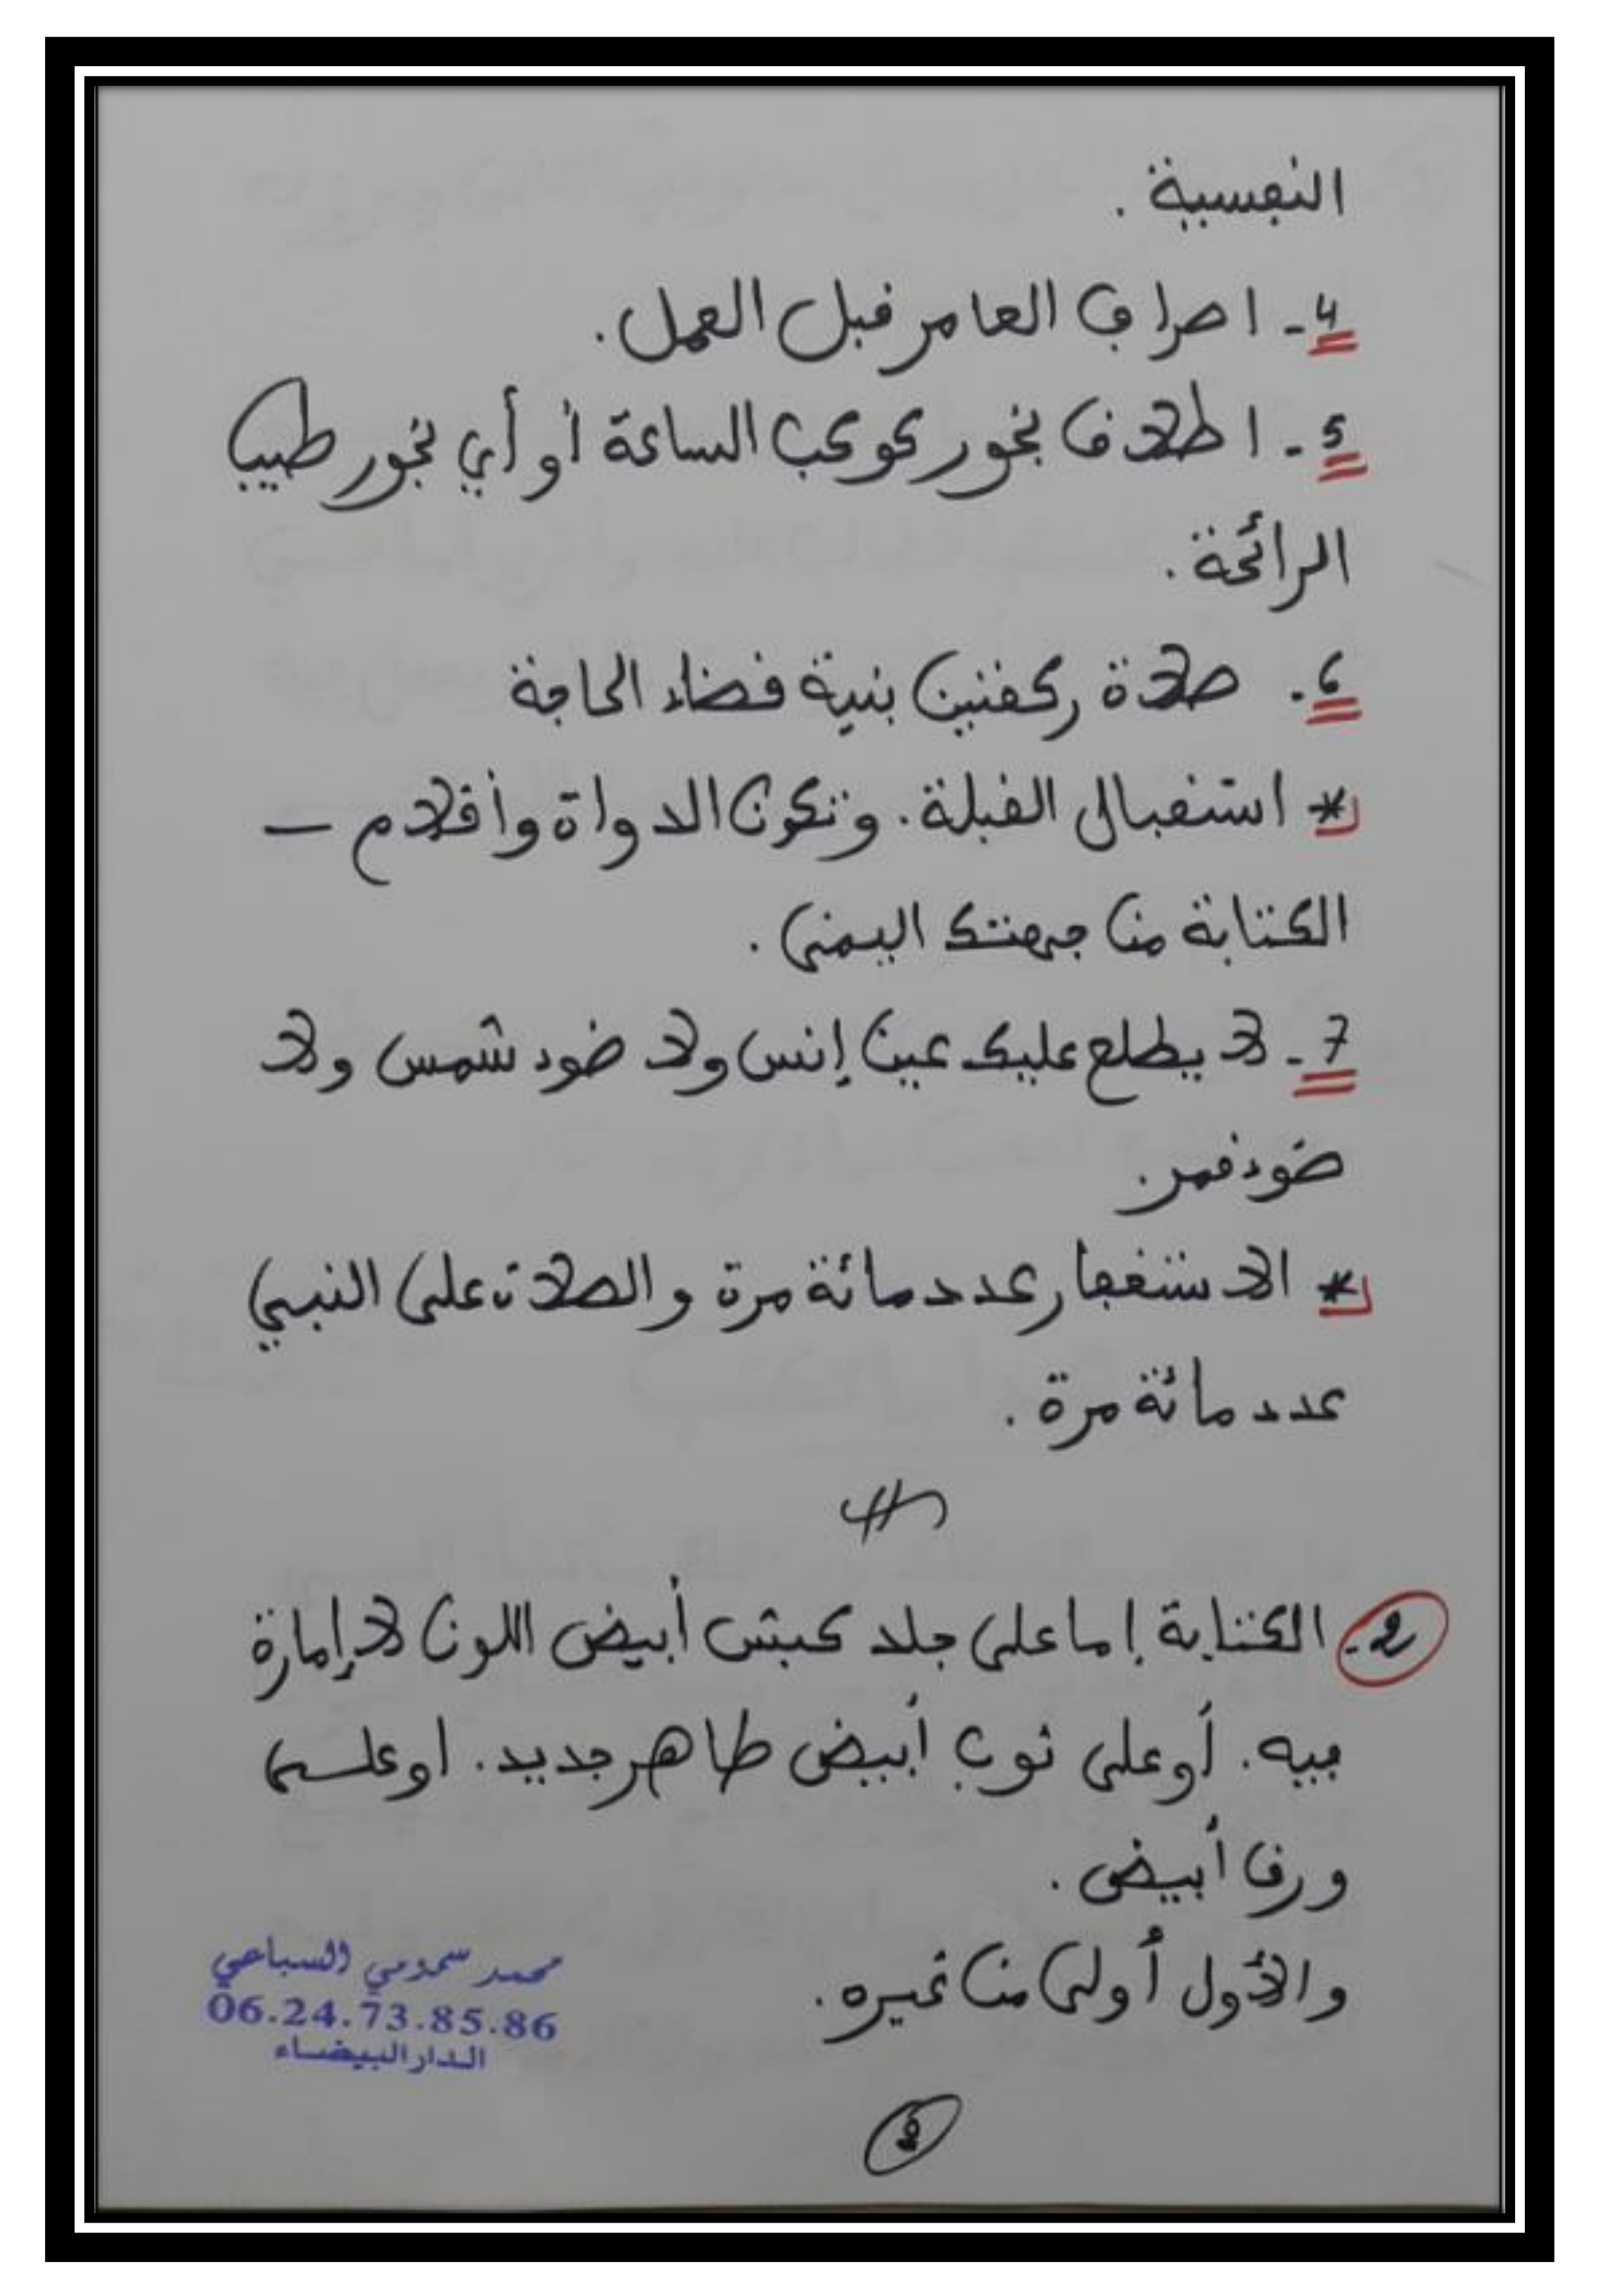 النفسية .
4 - اصراف العامر قبل العمل .
5 - اطلاق بخور كوكب الساعة أو أي بخور طيب
الرائحة .
6 - صلاة ركعتين بنية قضاء الحاجة
* استقبال القبلة . وتكون الدواة وأقلام –
الكتابة من جهتك اليمنى .
7 - لا يطلع عليك عين إنس ولا ضوء شمس ولا
ضوء قمر .
* الاستغفار عدد مائة مرة والصلاة على النبي
عدد مائة مرة .
2 - الكتابة إما على جلد كبش أبيض اللون لا إمارة
فيه . أو على ثوب أبيض طاهر جديد . او على
ورق أبيض .
والأول أولى من غيره .
محمد سمومي السباعي
06.24.73.85.86
الدار البيضاء
8